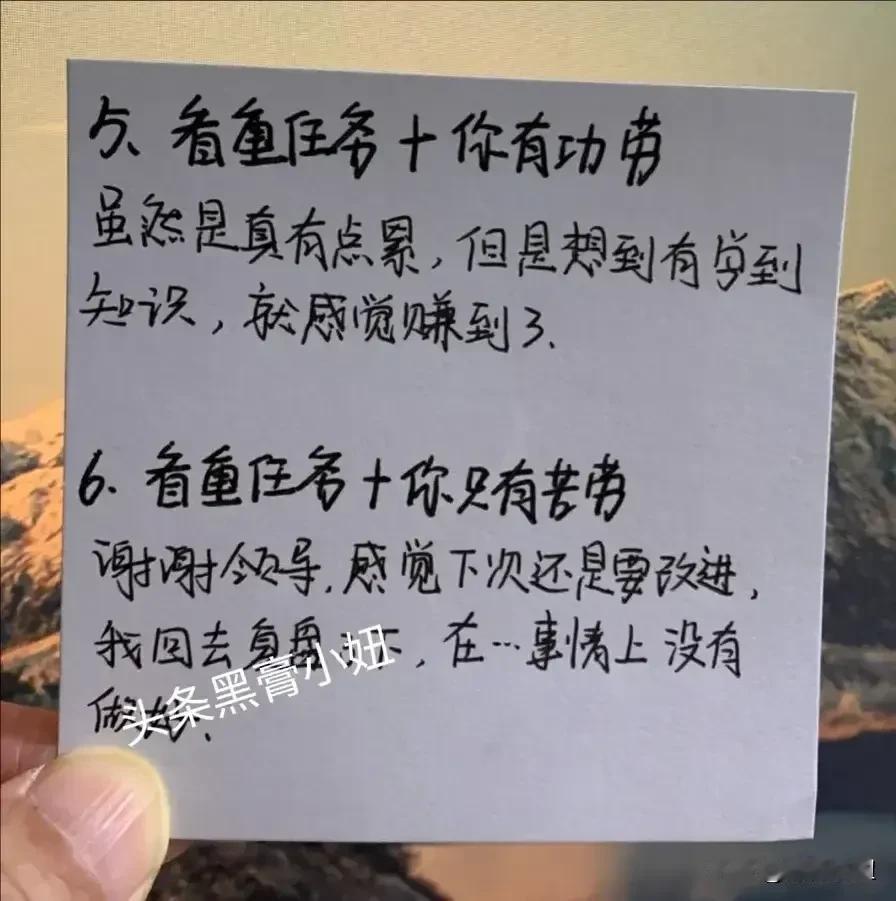 5、看重任务+你有功劳
虽然是真有点累,但是想到有学到
知识,就感觉赚到了.
6、看重任务+你只有苦劳
谢谢领导,感觉下次还是要改进,
我回去复盘一下,在…事情上没有
做好、
头条黑膏小妞